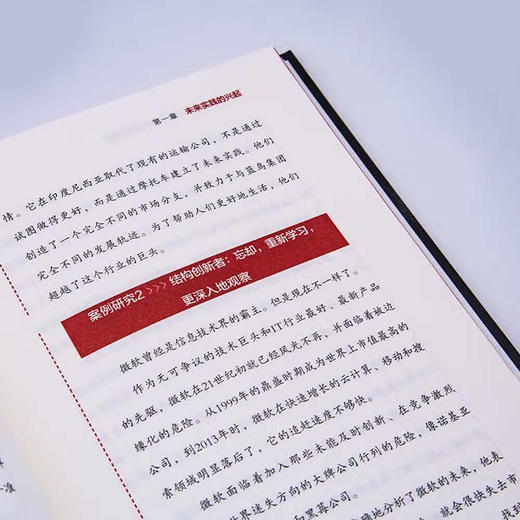 第一章 未来实践的兴起
情。它在印度尼西亚取代了现有的运输公司，不是通过
试图做得更好，而是通过摩托车建立了未来实践。他们
创造了一个完全不同的市场分支，并致力于与蓝鸟集团
完全不同的发展轨迹。为了帮助人们更好地生活，他们
超越了这个行业的巨头。
案例研究2 >>>> 结构创新者：忘却，重新学习，
更深入地观察
微软曾经是信息技术界的霸主。但是现在不一样了。
作为无可争议的技术巨头和IT行业最新、最新产品
的先驱，微软在21世纪初就已经风光不再，并面临着被边
缘化的危险。从1999年的鼎盛时期成为世界上市值最高的
公司，到2013年时，微软在快速增长的云计算、移动和搜
索领域明显落后了，它的追赶速度不够快。
微软面临着加入那些未能及时创新、在竞争激烈
世界迷失方向的大牌公司行列的危险，像诺基亚
和黑莓公司。
确地分析了微软的未来，他表
就会很快失去市
找到
准